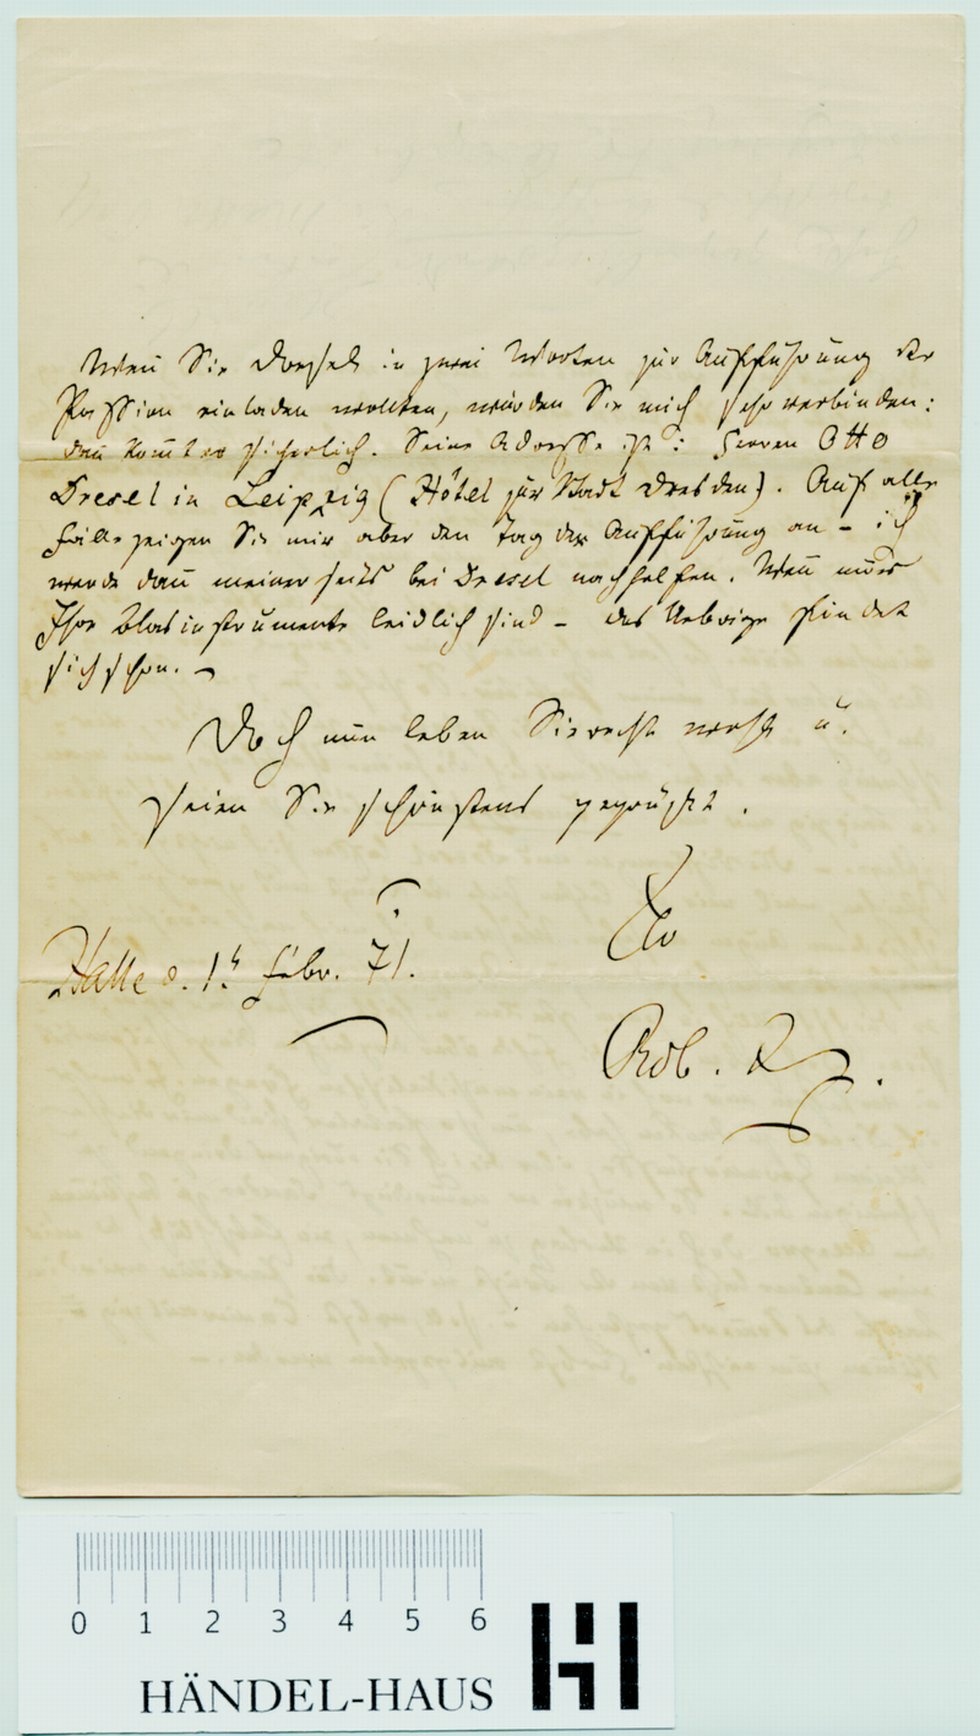 Wenn Sie Dresel in zwei Worten zur Aufführung der
Passion einladen wollten, würden Sie mich sehr verbinden:
dann kommt er sicherlich. Seine Adresse ist: Herren Otto
Dresel in Leipzig (Hôtel zur Stadt Dresden). Auf alle
Fälle zeigen Sie mir aber den Tag der Aufführung an – ich
werde dann meinerseits bei Dresel nachhelfen. Wenn nur
Ihre Blasinstrumente leidlich sind – das Uebrige findet
sich schon. –
Doch nun leben Sie recht wohl u.
seien Sie schönstens gegrüßt.
Ihr
Halle d. 1t Febr. 71.
Rob.
0 1 2 3 4 5 6
HÄNDEL-HAUS